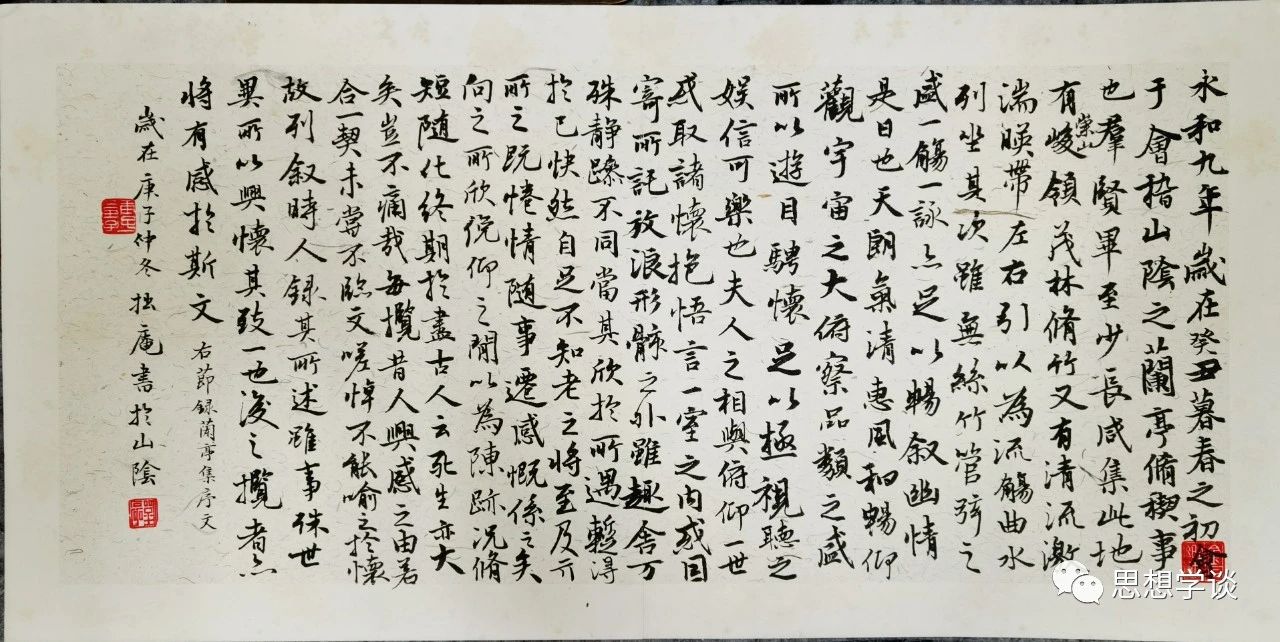 永和九年歲在癸丑暮春之初會
于會稽山陰之蘭亭脩稧事
也羣賢畢至少長咸集此地
有崇山峻領茂林脩竹又有清流激
湍暎帶左右引以為流觴曲水
列坐其次雖無絲竹管弦之
盛一觴一詠亦足以暢叙幽情
是日也天朗氣清惠風和暢仰
觀宇宙之大俯察品類之盛
所以遊目騁懷足以極視聽之
娛信可樂也夫人之相與俯仰一世
或取諸懷抱悟言一室之内或因
寄所託放浪形骸之外雖趣舍万
殊靜躁不同當其欣於所遇暫得
於己快然自足不知老之將至及其
所之既惓情隨事遷感慨係之矣
向之所欣俛仰之閒以為陳跡况脩
短隨化終期於盡古人云死生亦大
矣豈不痛哉每攬昔人興感之由若
合一契未嘗不臨文嗟悼不能喻之於懷
故列叙時人錄其所述雖事殊世
異所以興懷其致一也後之攬者亦
將有感於斯文 右節録蘭亭集序文
歲在庚子仲冬拙庵書於山陰
思想学谈